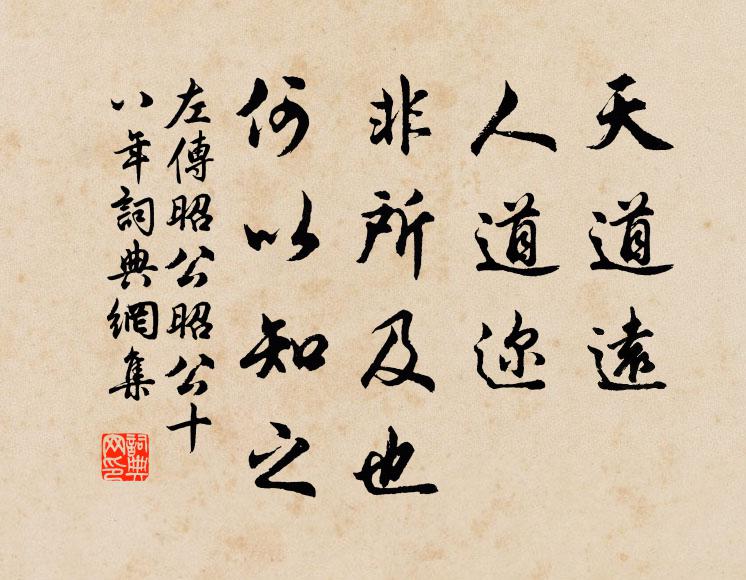 天道遠
人道迩
非所及也
何以知之
左傳昭公昭公十
八年詞典網集
詞典
网印